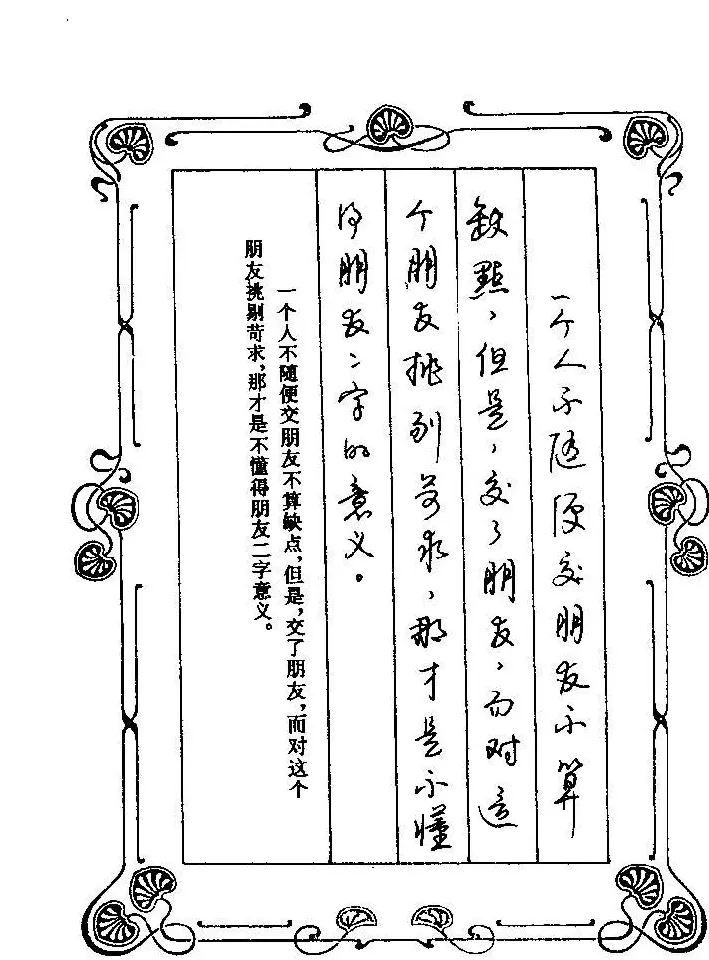 一个人不随便交朋友不算
缺點，但是，交了朋友，而对這
个朋友挑剔苛求，那才是不懂
得朋友二字的意义。
一个人不随便交朋友不算缺点，但是，交了朋友，而对这个
朋友挑剔苛求，那才是不懂得朋友二字意义。